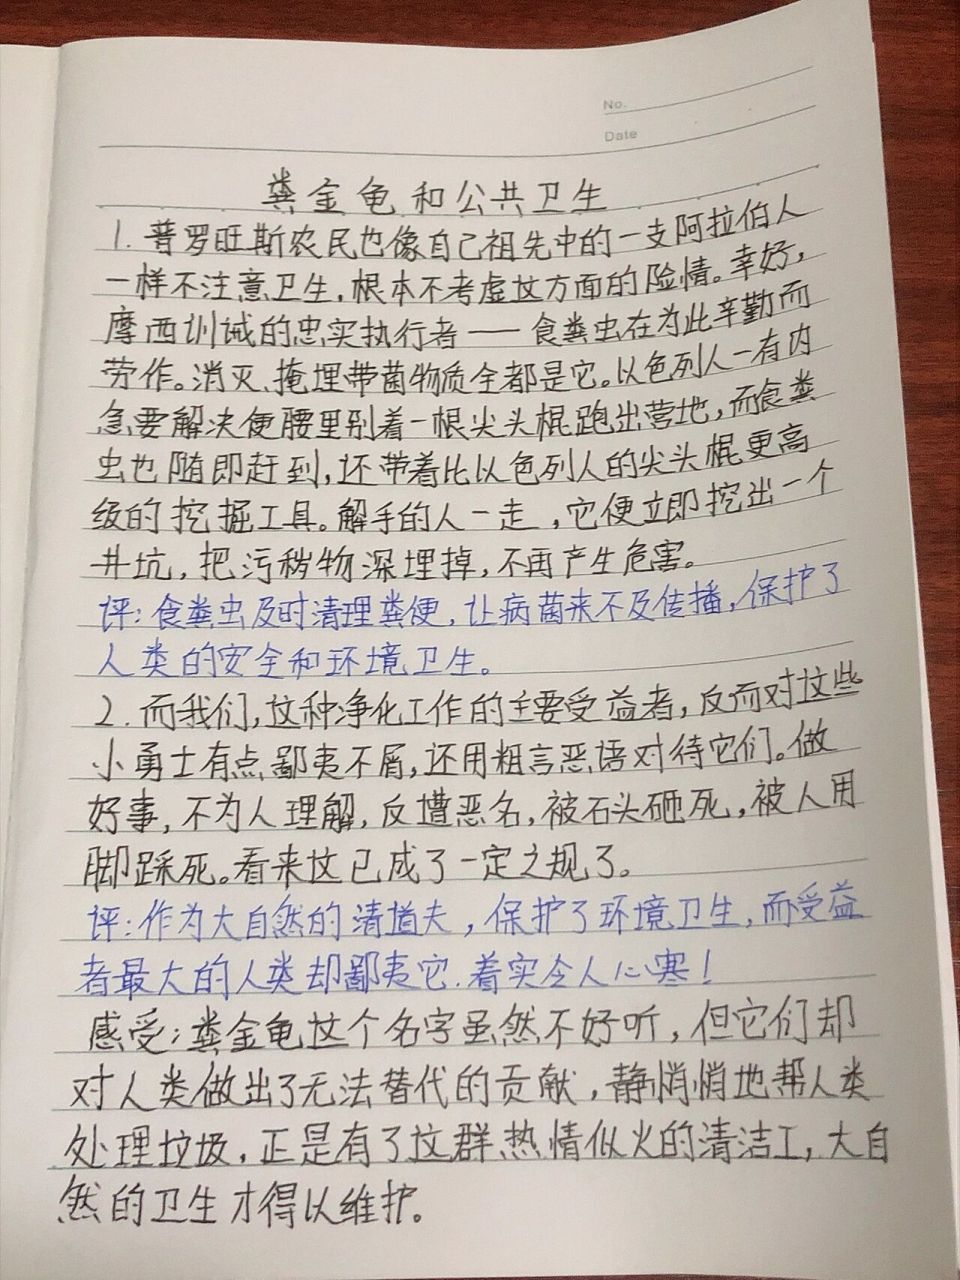 No.
Date
粪金龟和公共卫生
1. 普罗旺斯农民也像自己祖先中的一支阿拉伯人
一样不注意卫生,根本不考虑这方面的险情。幸好,
摩西训诫的忠实执行者——食粪虫在为此辛勤而
劳作。消灭、掩埋带菌物质全都是它。以色列人一有内
急要解决便腰里别着一根尖头棍跑出营地,而食粪
虫也随即赶到,还带着比以色列人的尖头棍更高
级的挖掘工具。解手的人一走,它便立即挖出一个
井坑,把污秽物深埋掉,不再产生危害。
评:食粪虫及时清理粪便,让病菌来不及传播,保护了
人类的安全和环境卫生。
2. 而我们,这种净化工作的主要受益者,反而对这些
小勇士有点鄙夷不屑,还用粗言恶语对待它们。做
好事,不为人理解,反遭恶名,被石头砸死,被人用
脚踩死。看来这已成了一定之规了。
评:作为大自然的清道夫,保护了环境卫生,而受益
者最大的人类却鄙夷它.着实令人心寒!
感受:粪金龟这个名字虽然不好听,但它们却
对人类做出了无法替代的贡献,静悄悄地帮人类
处理垃圾,正是有了这群热情似火的清洁工,大自
然的卫生才得以维护。